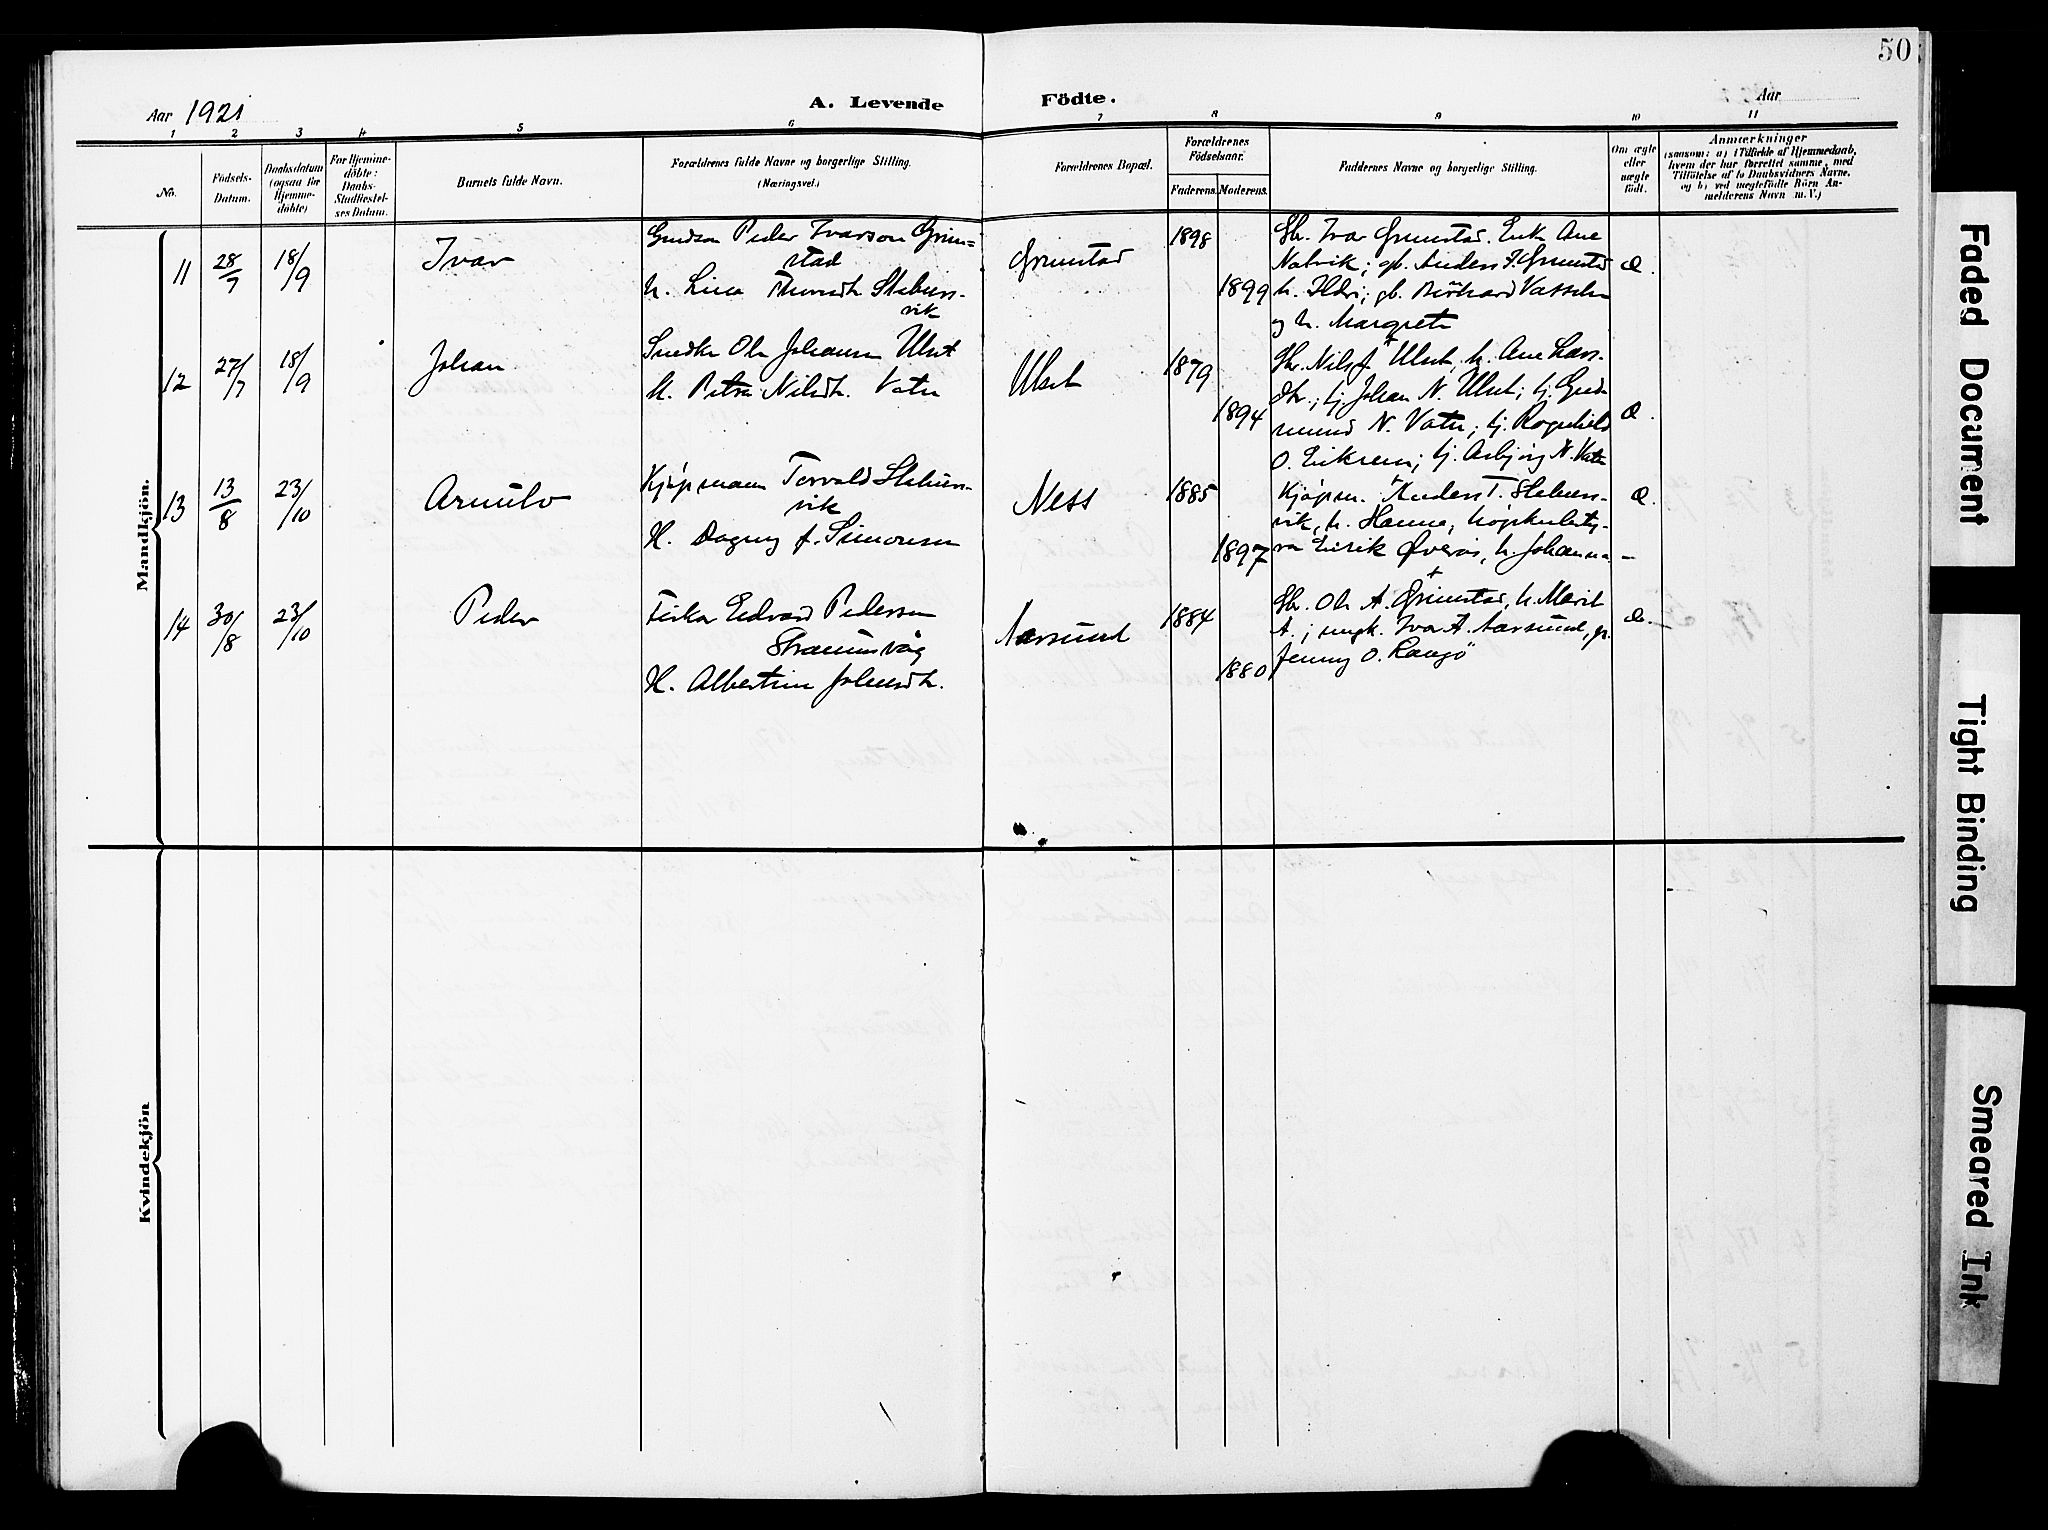 50
Aar 1921
A. Levende Födte.
Aar
1 2 3 4 5 6 7 8 9 10 11
No.
Födsels-Datum.
Daabsdatum (ogsaa for Hjemmedöbte)
For Hjemmedöbte: Daabs-Stadfæstelses Datum.
Barnets fulde Navn.
Forældrenes fulde Navne og borgerlige Stilling.
(Næringsvei.)
Forældrenes Bopæl.
Forældrenes Födselsaar.
Faderens. Moderens.
Faddernes Navne og borgerlige Stilling.
Om ægte eller uægte födt.
Anmærkninger
(saasom: a) i Tilfælde af Hjemmedaab, hvem der har forrettet samme, med Tilföielse af to Daabsvidners Navne, og b) ved uægtefödte Börn Anmelderens Navn m. V.)
Mandkjön.
11 28/7 18/9 Ivar
Peder Ivarson Grim=
stad
h. Lina Stabens-
vik
Grimstad
1898
1899
Ivar Grimstad. Enk. Ane
Nalvik; gb. Anders I. Grimstad
h. Ildri; gb. Vasslen
og h. Margrete
Æ.
12 27/7 18/9 Johan
Snedker Ole Johansen Ulset
H. Petra Nilsdtr. Vatn
Ulset
1879
1894
Gbr. Nils J. Ulset, h. Ane Lars-
dtr.; tj. Johan N. Ulset; tj. Gud-
mund N. Vatn; tj. Ragnhild
O. Eriksen; tj. Asbjörg N. Vatn
Æ.
13 13/8 23/10 Arnulv
Kjøpmann Torvald Stabens-
vik
H. Dagny f. Simonsen
Ness
1885
1897
Kjøpm. Anders T. Stabens-
vik, h. Hanna,
Eirik Øverås, h. Johanna
Æ.
14 30/8 23/10 Peder
Fisker Edvard Pedersen
Strømsvåg
H. Albertine Johnsdtr.
Aarsund
1884
1880
Gbr. Ole A. Grimstad, h. Marit
A.; ungk. Ivar A. Aarsund, p.
Jenny O. Ramsö
Æ.
Kvindekjön
Faded Document
Tight Binding
Smeared Ink